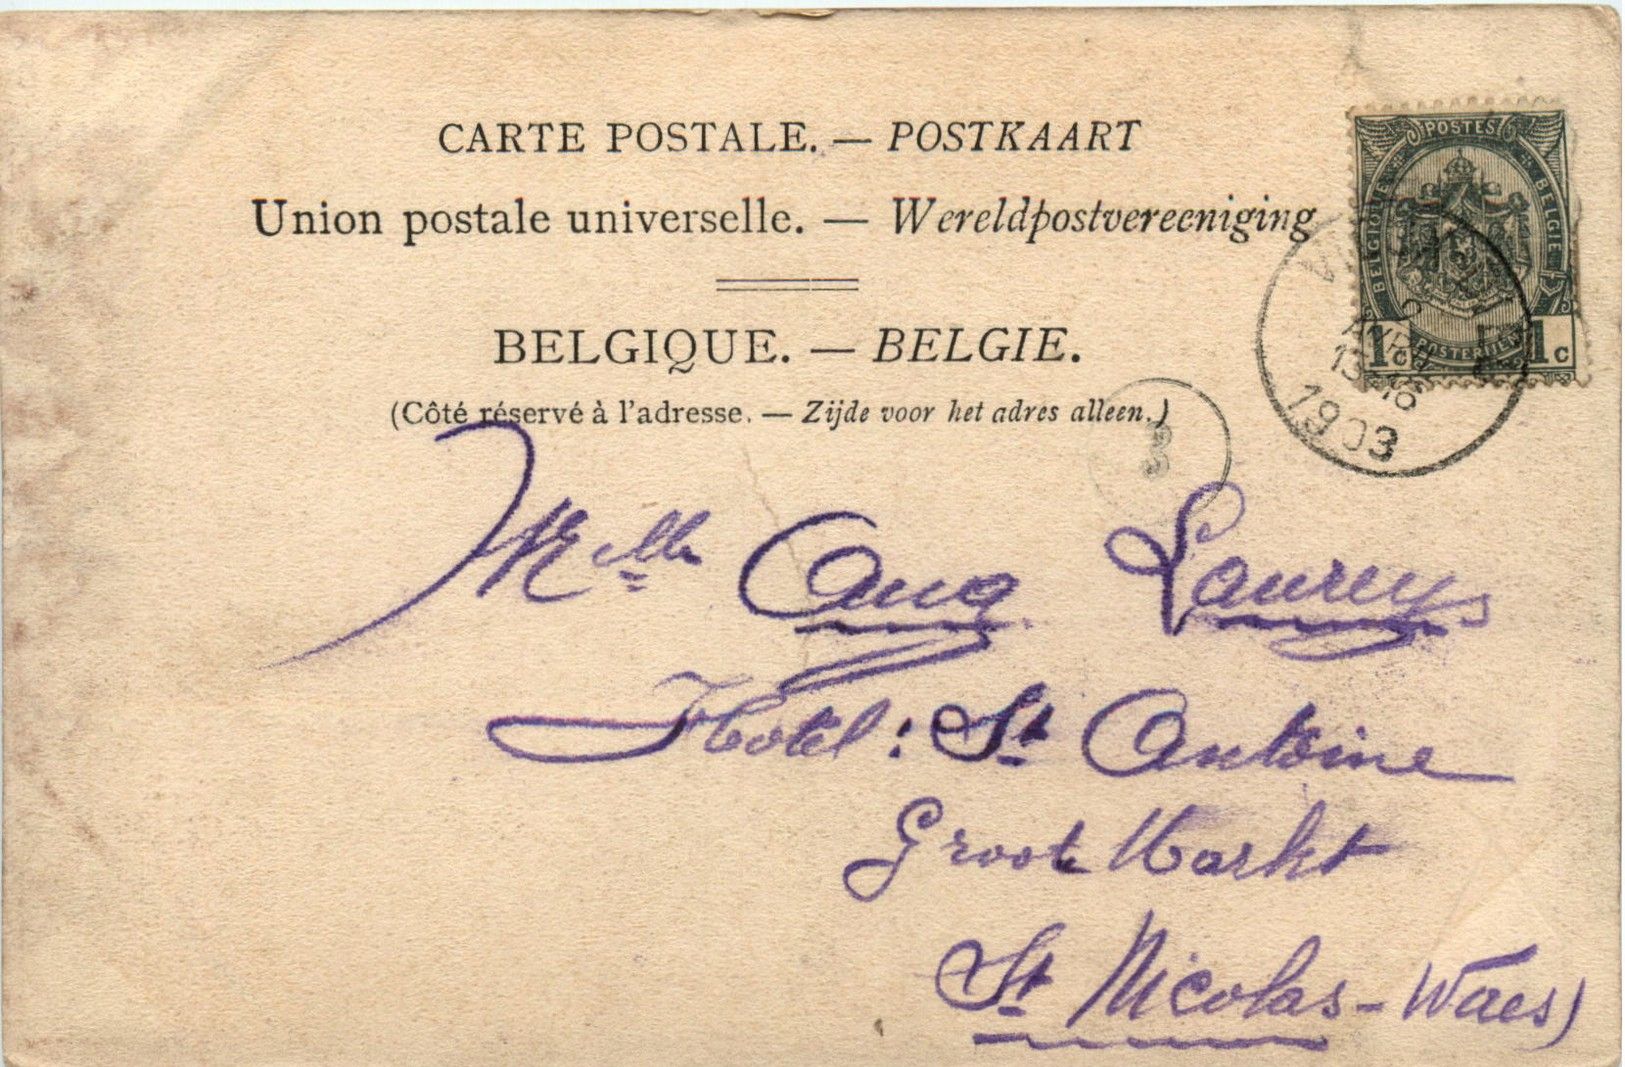 CARTE POSTALE. — POSTKAART
Union postale universelle. — Wereldpostvereeniging
BELGIQUE. — BELGIE.
(Côté réservé à l'adresse. — Zijde voor het adres alleen.)
POSTES
BELGIQUE
BELGIË
POSTERIJEN
1c
1c
AVRIL
13-16
1903
3
Melle Aug Laureys
Hotel: St Antoine
Groote Markt
St Nicolas-Waes)